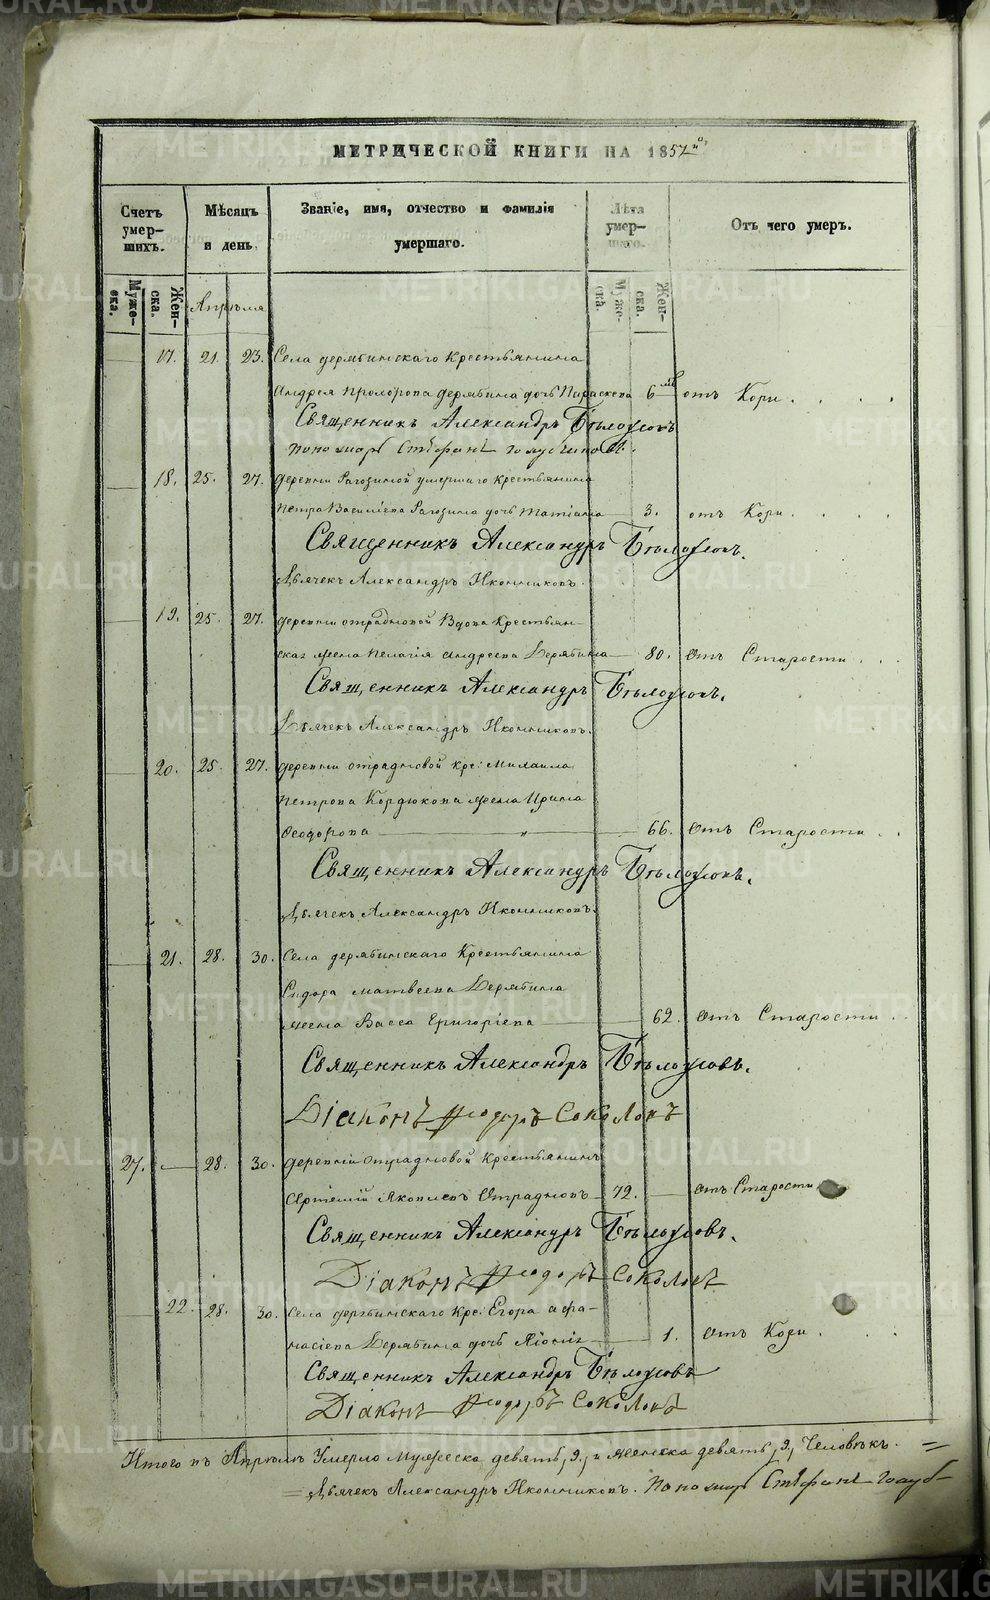 МЕТРИЧЕСКОЙ КНИГИ НА 1857го,
Счетъ умер-шихъ.
Мѣсяцъ и день.
Званіе, имя, отчество и фамилія умершаго.
Лѣта умер-шаго.
Отъ чего умеръ.
Муже-ска.
Жен-ска.
Апрѣля
Муже-ска.
Жен-ска.
17. 21. 23. Села дерябинскаго Крестьянина
Андрея Прохорова дерябина дочь Параскева 6 мѣ отъ Кори.
Священникъ Александръ Бѣлоусовъ
Пономарь Стефанъ
18. 25. 27. деревни Рагозиной умершаго Крестьянина
Петра Василіева Рагозина дочь Татіана 3. отъ Кори.
Священникъ Александръ Бѣлоусовъ.
Дьячекъ Александръ Иконниковъ.
19. 25. 27. деревни отрадновой Вдова Крестьян-
ская жена Пелагія Андреева Дерябина 80. Отъ Старости.
Священникъ Александръ Бѣлоусовъ.
Дьячекъ Александръ Иконниковъ.
20. 25. 27. деревни отрадновой кре: Михаила
Петрова Кордюкова жена Ирина
Феодорова " 66. Отъ Старости.
Священникъ Александръ Бѣлоусовъ.
Дьячекъ Александръ Иконниковъ.
21. 28. 30. Села дерябинскаго Крестьянина
Сидора Матвеева Дерябина
жена Васса Григоріева 62. Отъ Старости.
Священникъ Александръ Бѣлоусовъ.
Діаконъ Ѳеодоръ Соколовъ
27. 28. 30. деревни Отрадновой Крестьянинъ
Артемій Яковлевъ Отрадновъ 72. Отъ Старости
Священникъ Александръ Бѣлоусовъ.
Діаконъ Ѳеодоръ Соколовъ
22. 28. 30. Села дерябинскаго Кре: Егора Афа-
насіева Дерябина дочь 1. Отъ Кори.
Священникъ Александръ Бѣлоусовъ
Діаконъ Ѳеодоръ Соколовъ
Итого въ Апрѣлѣ Умерло Мужеска девять, 9, и женска девять, 9, Человѣкъ.
Дьячекъ Александръ Иконниковъ. Пономарь Стефанъ Голуб-
METRIKI.GASO-URAL.RU